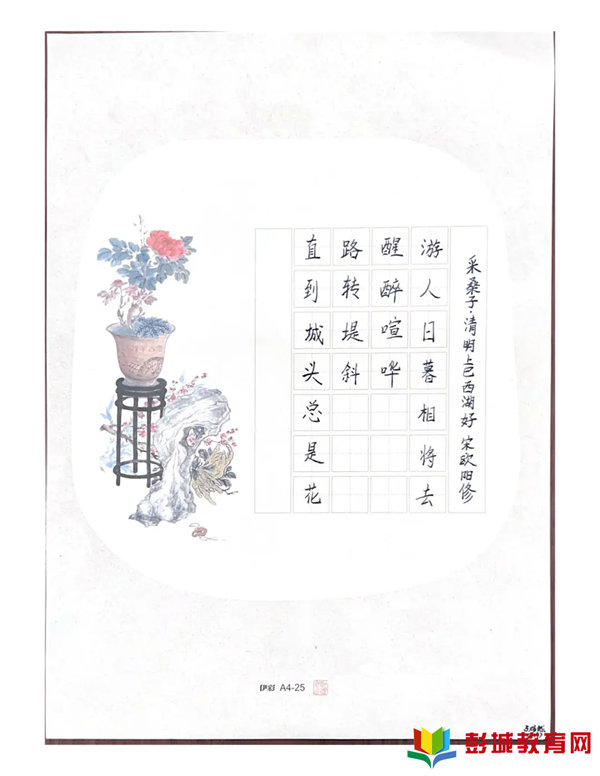 采桑子·清明上巳西湖好 宋欧阳修
游人日暮相将去
醒醉喧哗
路转堤斜
直到城头总是花
伊彩 A4-25
彭城教育网